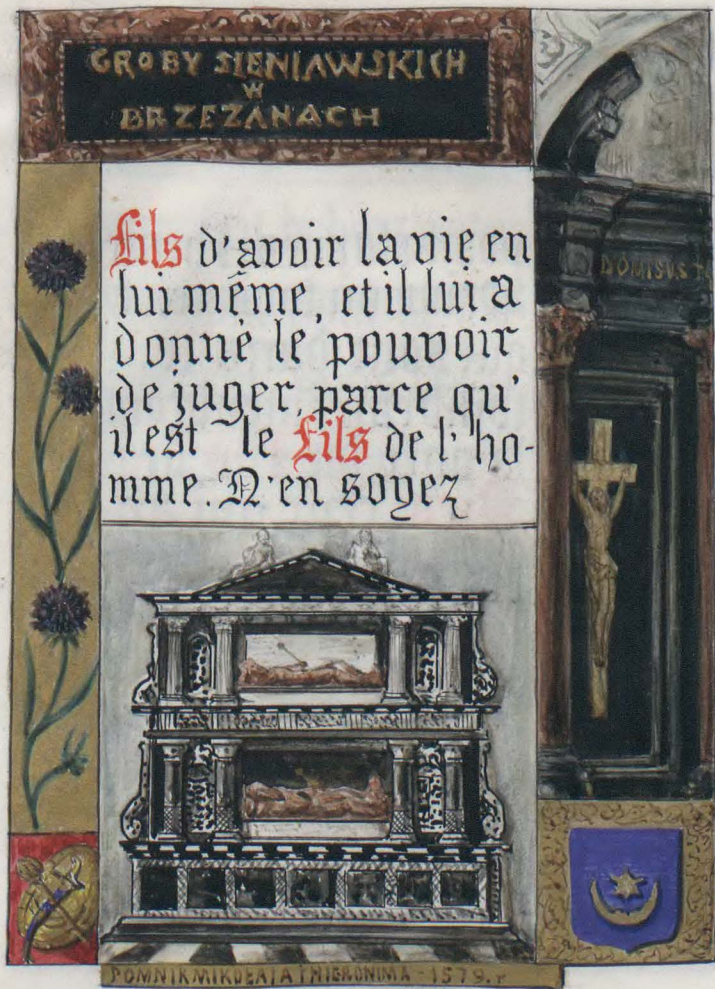 GROBY SIENIAWSKICH
W
BRZEŻANACH
Fils d'avoir la vie en
lui même, et il lui a
donné le pouvoir
de juger, parce qu'
il est le Fils de l'ho-
mme. N'en soyez
DOMISUS T
POMNIK MIKOŁAJA I HIERONIMA - 1579. r